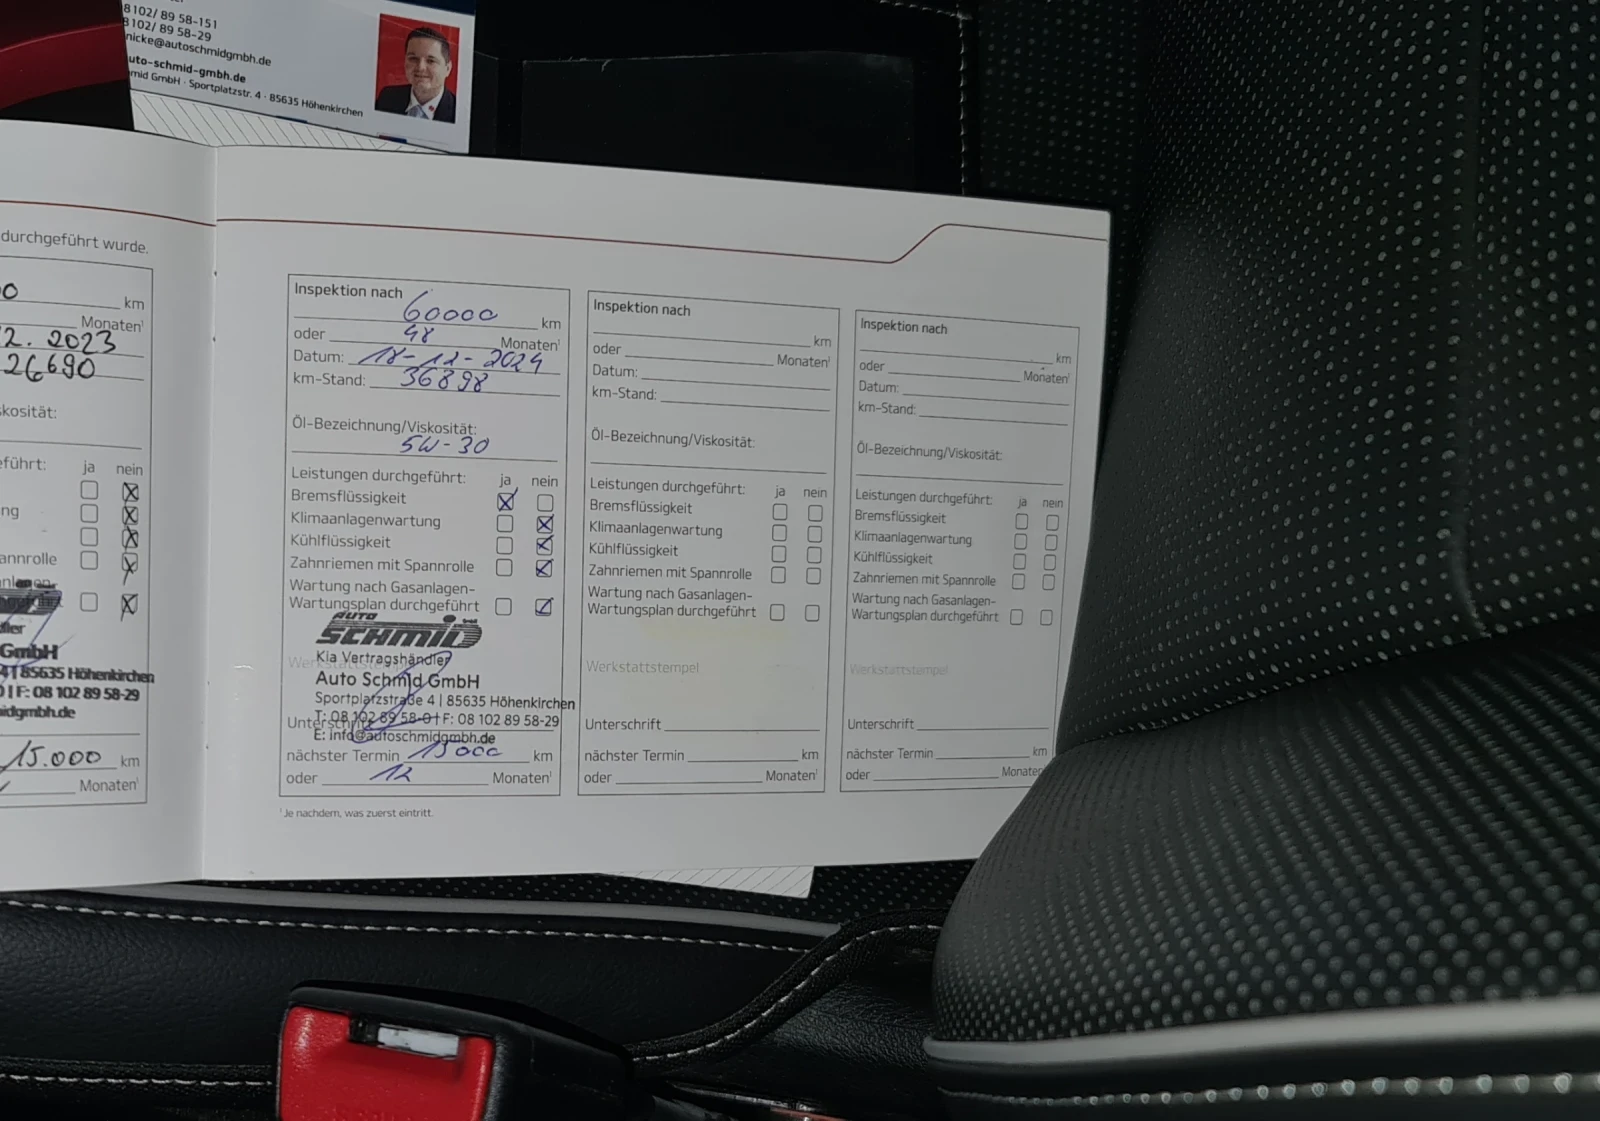 8102/ 89 58-151
8102/ 89 58-29
nicke@autoschmidgmbh.de
uto-schmid-gmbh.de
mid GmbH · Sportplatzstr. 4 · 85635 Höhenkirchen
durchgeführt wurde.
0 km
Monaten¹
2. 2023
26690
skosität:
eführt: ja nein
ng
annrolle
anlagen-
GmbH
4 | 85635 Höhenkirchen
| F: 08 102 89 58-29
midgmbh.de
15.000 km
Monaten¹
Inspektion nach 60000 km
oder 48 Monaten¹
Datum: 18-12-2024
km-Stand: 36898
Öl-Bezeichnung/Viskosität:
5W-30
Leistungen durchgeführt: ja nein
Bremsflüssigkeit
Klimaanlagenwartung
Kühlflüssigkeit
Zahnriemen mit Spannrolle
Wartung nach Gasanlagen-
Wartungsplan durchgeführt
AUTO
SCHMID GmbH
Kia Vertragshändler
Werkstattstempel
Auto Schmid GmbH
Sportplatzstraße 4 | 85635 Höhenkirchen
T: 08 102 89 58-0 | F: 08 102 89 58-29
Unterschrift
E: info@autoschmidgmbh.de
nächster Termin 15000 km
oder 12 Monaten¹
¹Je nachdem, was zuerst eintritt.
Inspektion nach
km
oder Monaten¹
Datum:
km-Stand:
Öl-Bezeichnung/Viskosität:
Leistungen durchgeführt: ja nein
Bremsflüssigkeit
Klimaanlagenwartung
Kühlflüssigkeit
Zahnriemen mit Spannrolle
Wartung nach Gasanlagen-
Wartungsplan durchgeführt
Werkstattstempel
Unterschrift
nächster Termin km
oder Monaten¹
Inspektion nach
km
oder Monaten¹
Datum:
km-Stand:
Öl-Bezeichnung/Viskosität:
Leistungen durchgeführt: ja nein
Bremsflüssigkeit
Klimaanlagenwartung
Kühlflüssigkeit
Zahnriemen mit Spannrolle
Wartung nach Gasanlagen-
Wartungsplan durchgeführt
Werkstattstempel
Unterschrift
nächster Termin km
oder Monaten